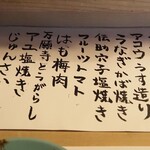 アコウうす造り
うなぎかば焼き
伝助穴子塩焼き
フルーツトマト
はも梅肉
万願寺とうがらし
アユ塩焼き
じゅんさい